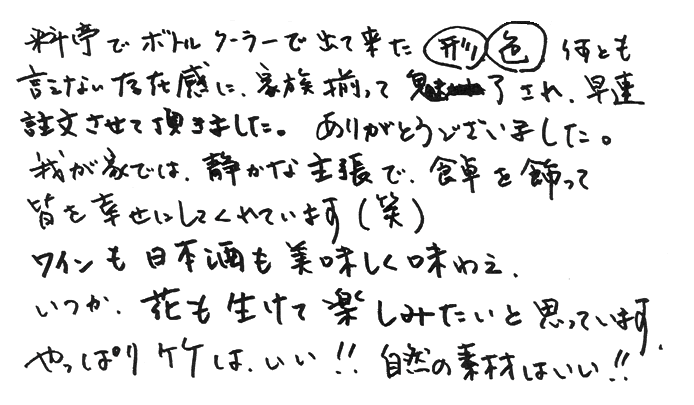 料亭でボトルクーラーで出て来た 形 色 何とも
言えない存在感に、家族揃って 魅了され、早速
注文させて頂きました。 ありがとうございました。
我が家では、静かな主張で、食卓を飾って
皆を幸せにしてくれています(笑)
ワインも日本酒も美味しく味わえ、
いつか、花も生けて楽しみたいと思っています。
やっぱり竹は、いい!! 自然の素材はいい!!